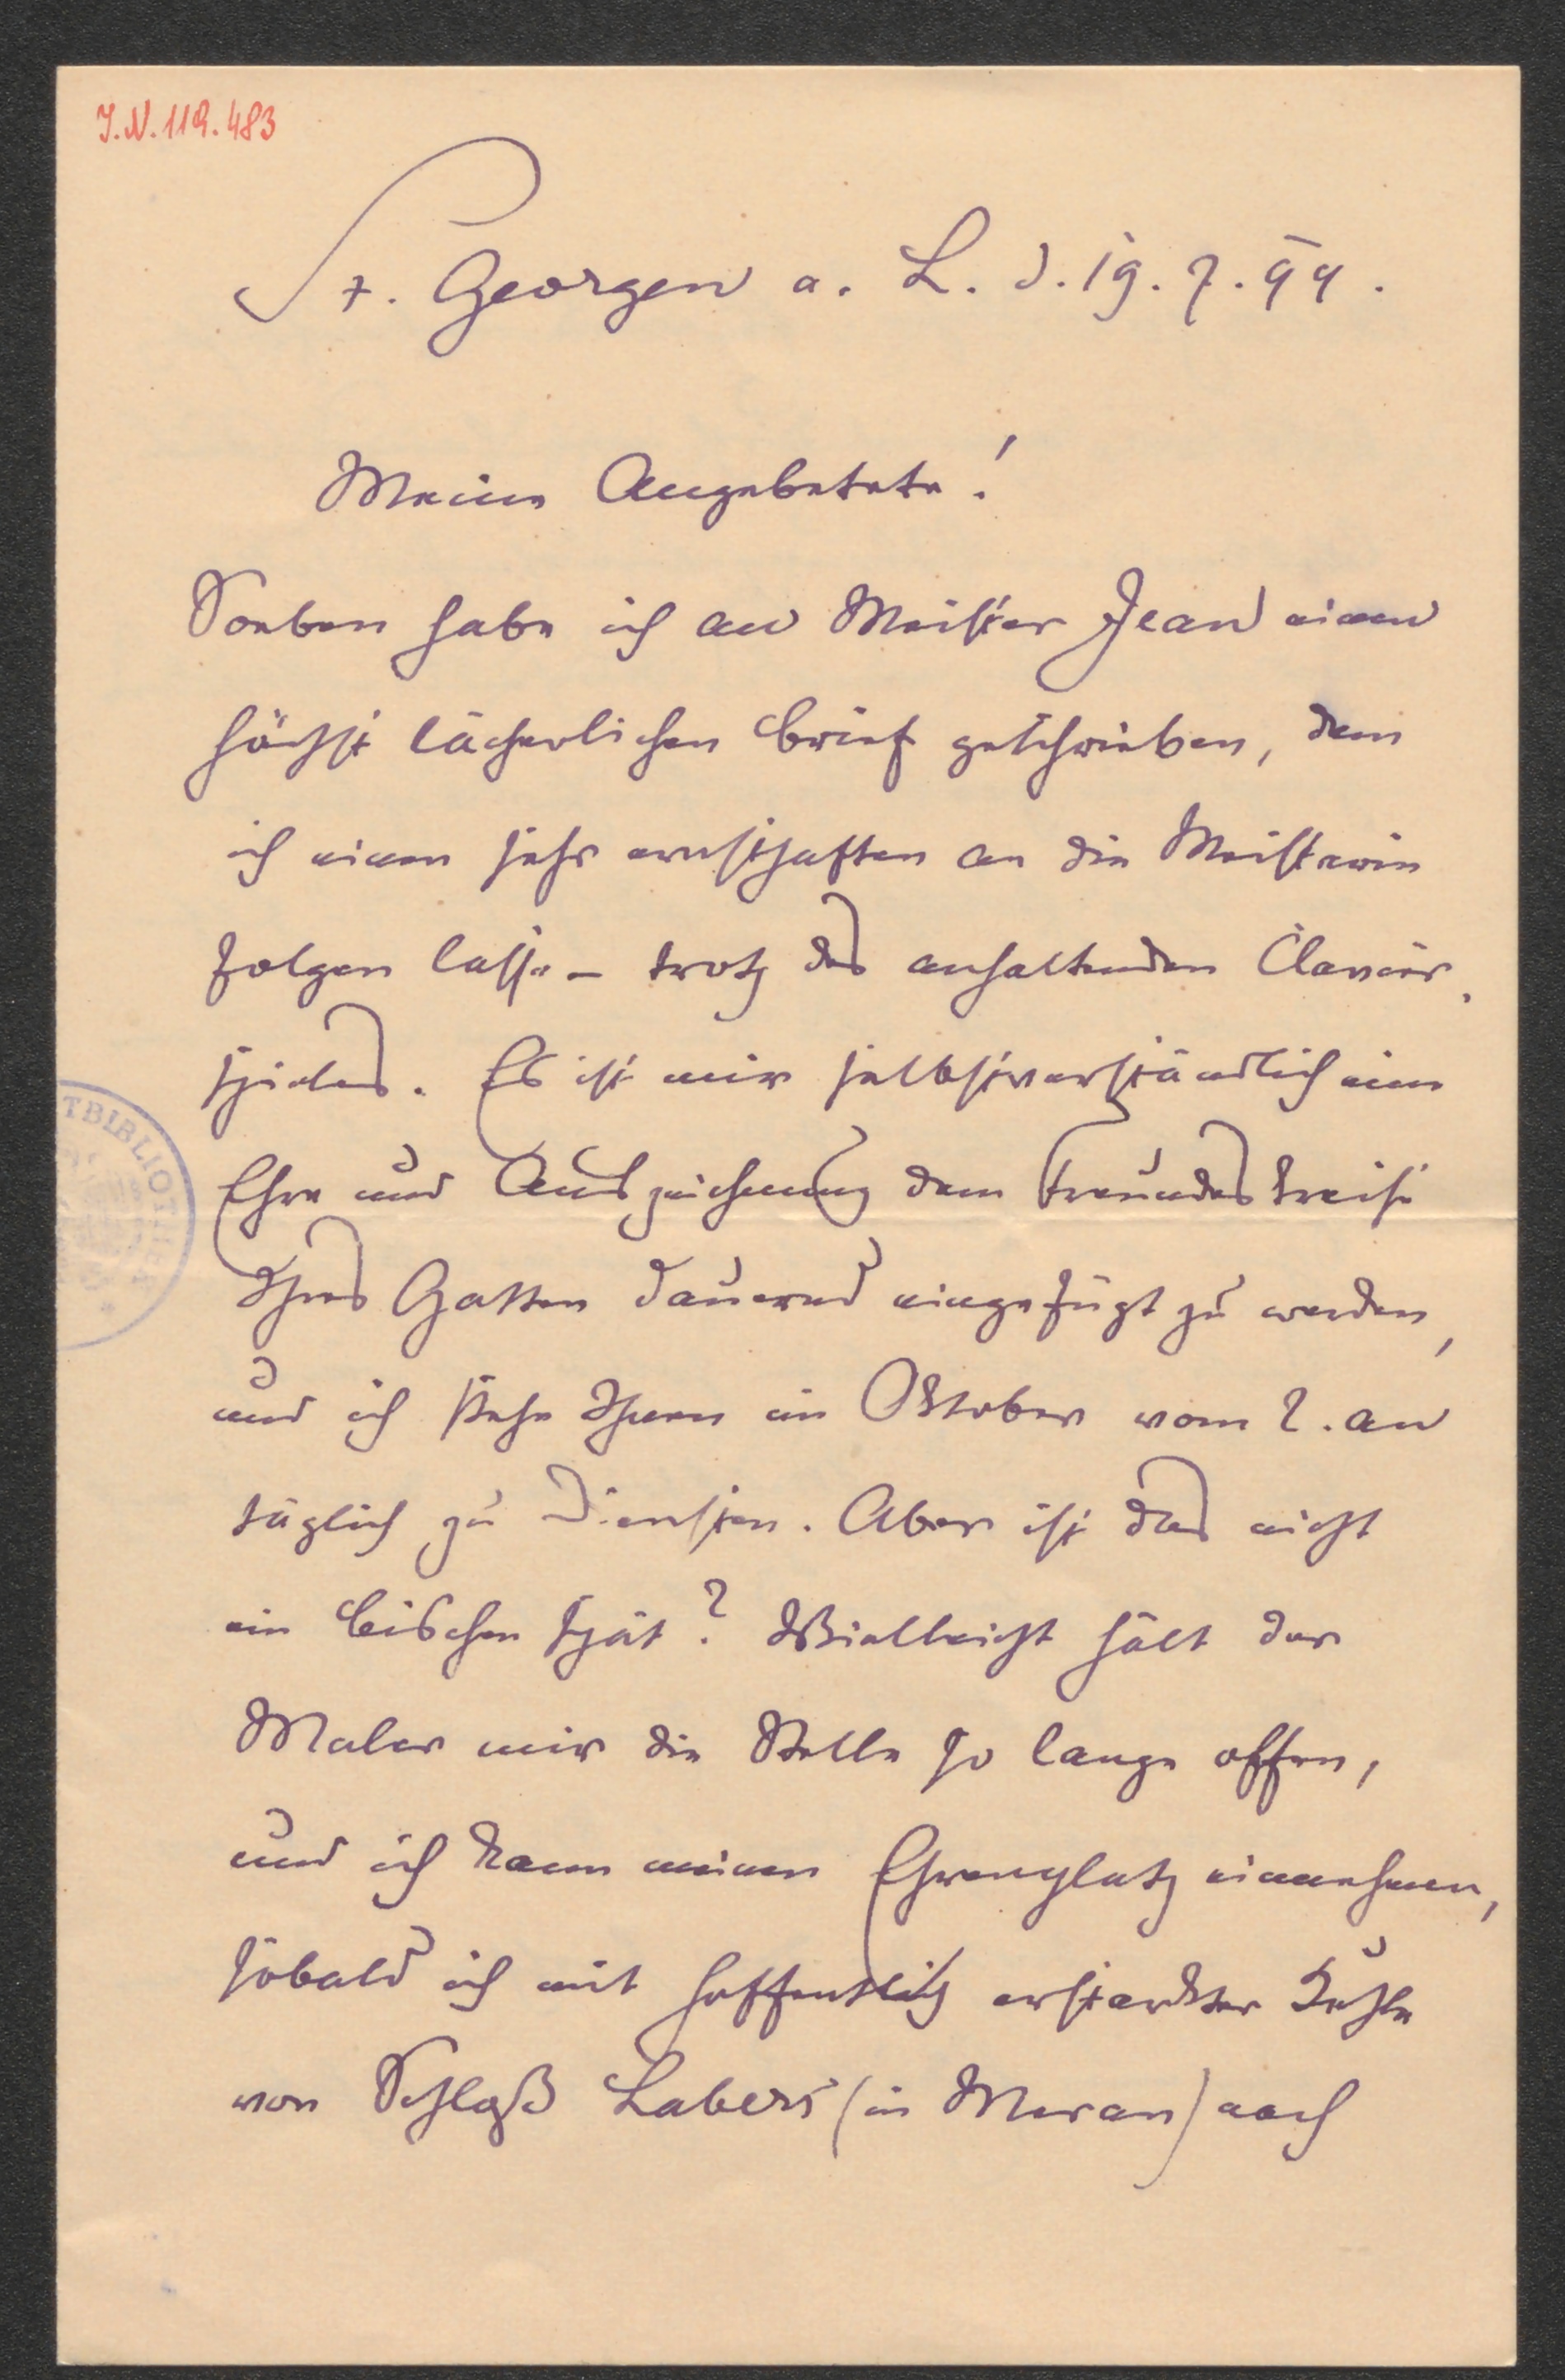 J.N. 119.483
St. Georgen a. L. d. 19. 7. 99.
Meine Angebetete!
Soeben habe ich an Meister Jean einen
höchst lächerlichen Brief geschrieben, dem
ich einen sehr ernsthaften an die Meisterin
folgen lasse – trotz des anhaltenden Clavier-
spieles. Es ist mir selbstverständlich eine
Ehre und Auszeichnung dem Freundeskreise
Ihres Gatten dauernd eingefügt zu werden,
und ich stehe Ihnen im Oktober vom 2. an
täglich zu Diensten. Aber ist das nicht
ein bischen spät? Vielleicht hält der
Maler mir die Stelle so lange offen,
und ich kann meinen Ehrenplatz einnehmen,
sobald ich mit hoffentlich erstarkter Kehle
von Schloß Labers (in Meran) nach
TBIBLIOTHEK